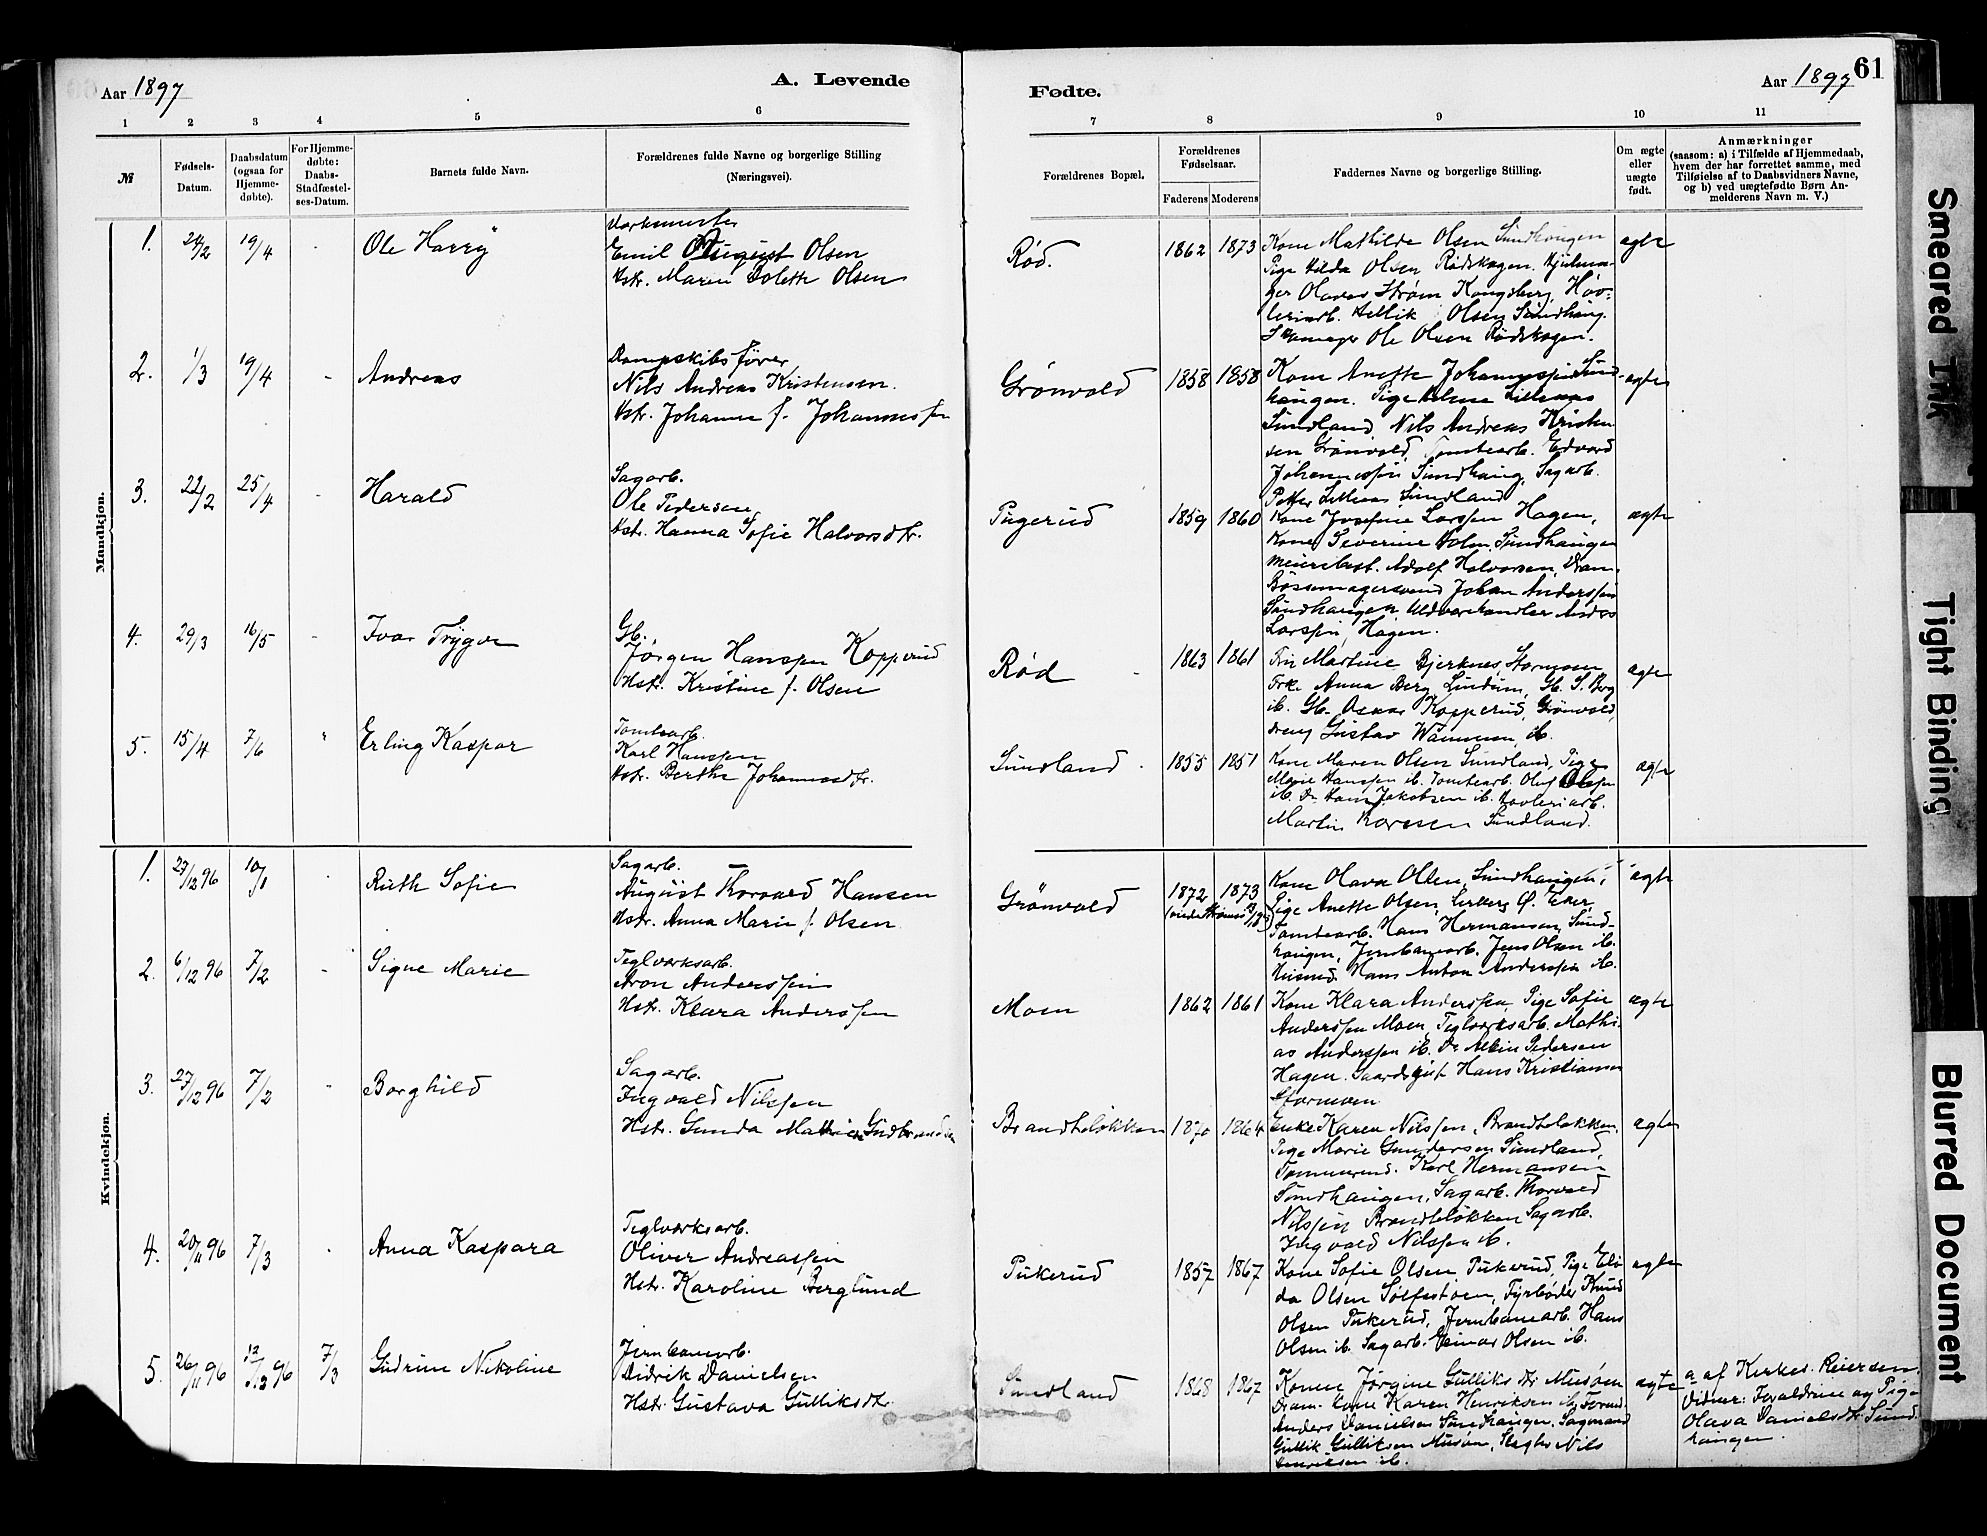 Aar 1897
A. Levende
Fødte.
Aar 1897 61
1 2 3 4 5 6
7 8 9 10 11
№
Fødsels-
Datum.
Daabsdatum
(ogsaa for
Hjemme-
døbte).
For Hjemme-
døbte:
Daabs-
Stadfæstel-
ses-Datum.
Barnets fulde Navn.
Forældrenes fulde Navne og borgerlige Stilling
(Næringsvei).
Forældrenes Bopæl.
Forældrenes
Fødselsaar.
Faderens Moderens
Faddernes Navne og borgerlige Stilling.
Om ægte
eller
uægte
født.
Anmærkninger
(saasom: a) i Tilfælde af Hjemmedaab,
hvem der har forrettet samme, med
Tilføielse af to Daabsvidners Navne,
og b) ved uægtefødte Børn An-
melderens Navn m. V.)
Mandkjøn.
1. 19/4 Ole Harry
Emil August Olsen
Hstr. Maren Olsen
Rød. 1862 1873 ægte
Kone Mathilde Olsen Sundhaugen
Pige Hilda Olsen Rødskogen. Hjulma-
ger Olavus Strøm Kongsberg, Høv-
leriarb. Olsen Sundhaug.
Skomager Ole Olsen Rødskogen.
2. 1/3 19/4 Andreas
Dampskibsfører
Nils Andreas Kristensen.
Hstr. Johanne f. Johannessen
Grønvold 1858 1858 ægte
Kone Anette Johannessen Sund-
haugen. Pige
Sundland, Nils Andreas Kristen-
sen Grønvold, Tomtearb. Edvard
Johannessen Sundhaug, Sagarb.
Petter Sundland
3. 22/2 25/4 Harald
Sagarb.
Ole Pedersen
Hstr. Hanna Sofie Halvorsdtr.
Pugerud 1859 1860 ægte
Kone Josefine Larsen Hagen,
Kone Severine Holm, Sundhaugen
Meieribest. Adolf Halvorsen, Dram.
Bøssemagersvend Johan Anderssen
Sundhaugen Uldvarehandler Anders
Larssen, Hagen.
4. 29/3 16/5 Ivar Trygve
Gb.
Jørgen Hanssen Kopperud
Hstr. Kristine f. Olsen
Rød 1863 1861 ægte
Martine Bjerknes Stormoen
Frk. Anna Berg Lindum, Gb. S. Berg
ib. Gb. Oskar Kopperud, Grønvold,
Dreng Gustav ib.
5. 15/4 7/6 Erling Kaspar
Tomtearb.
Karl Hanssen
Hstr. Berthe Johannesdtr.
Sundland 1855 1851 ægte
Kone Maren Olsen Sundland, Pige
Marie Hanssen ib. Tomtearb. Oluf Olsen
ib. Do Hans Jakobsen ib. Høvleriarb.
Martin Sundland.
Kvindekjøn.
1. 27/12 96 10/1 Ruth Sofie
Sagarb.
August Thorvald Hansen
Hstr. Anna Marie f. Olsen
Grønvold 1872 1873 ægte
Kone Olava Olsen, Sundhaugen,
Pige Anette Olsen, Ø. Eker,
Tomtearb. Hans Hermansen, Sund-
haugen, Jernbanearb. Jens Olsen ib.
Hans Anton Anderssen ib.
2. 6/12 96 7/2 Signe Marie
Teglværksarb.
Aron Anderssen
Hstr. Klara Anderssen
Moen 1862 1861 ægte
Kone Klara Anderssen, Pige Sofie
Anderssen Moen, Teglværksarb. Mathi-
as Anderssen ib. Do Albin Pedersen
Hagen. Gaardsgut Hans Kristiansen
Stormoen
3. 27/12 96 7/2 Borghild
Sagarb.
Ingvald Nilssen
Hstr. Gunda Gudbrandsen
Brandteløkken 1870 1864 ægte
Enke Karen Nilssen, Brandteløkken.
Pige Marie Gundersen Sundland,
Tømmermd. Karl Hermansen
Sundhaugen, Sagarb. Thorvald
Nilssen Brandteløkken Sagarb.
Ingvald Nilssen ib.
4. 20/11 96 7/3 Anna Kaspara
Teglværksarb.
Oliver Andreassen
Hstr. Karoline Berglund
Pukerud 1857 1867 ægte
Kone Sofie Olsen Pukerud, Pige Elv-
da Olsen Solfestøen, Fyrbøder Knud
Olsen Pukerud, Jernbanearb. Hans
Olsen ib. Sagarb. Einar Olsen ib.
5. 26/11 96 7/3 Gudrun Nikoline
Jernbanearb.
Didrik Danielsen
Hstr. Gustava Gulliksdtr.
Sundland 1868 1867 ægte
Kone Jørgine Gulliksdtr Musøen
Dram. Kone Karen Henriksen ib.
Anders Danielsen Sundhaugen. Sagmand
Gullik Gulliksen Musøen, Nils
Henriksen ib.
a. af Kirkes. Reiersen.
Vidner: Forældrene og Pige
Olava Danielsdtr. Sund-
haugen.
Smeared Ink
Tight Binding
Blurred Document